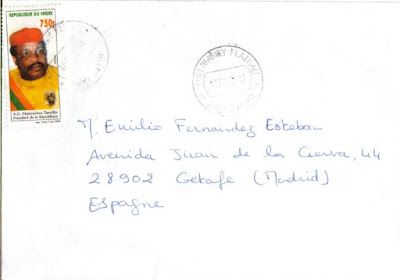 REPUBLIQUE DU NIGER
750F
S.E. Mamadou Tandja
Président de la République
NIAMEY PLATEAU
M. Emilio Fernandez Esteban
Avenida Juan de la Cierva, 44
28902 Getafe (Madrid)
Espagne